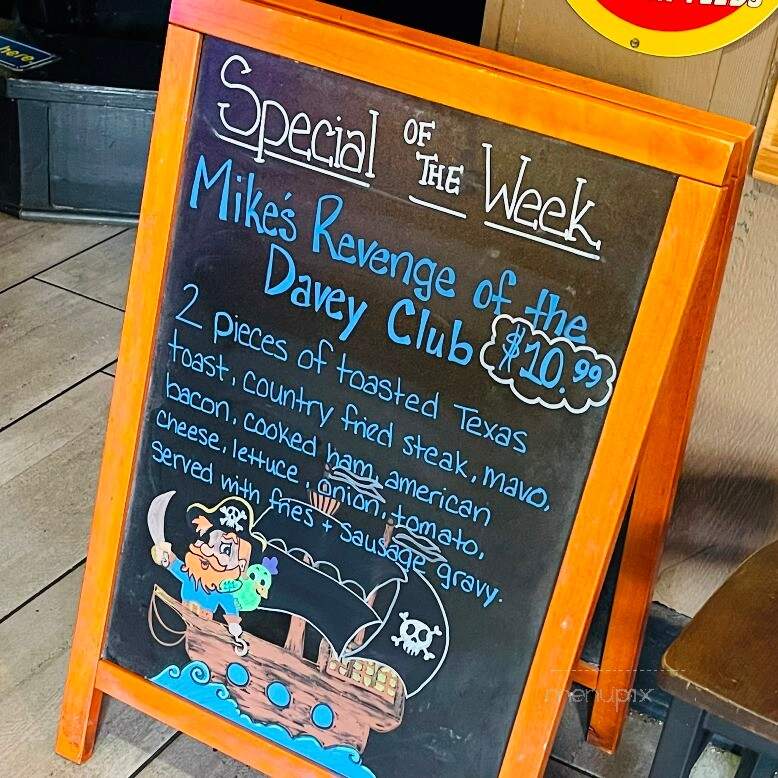 here.
Special OF THE Week
Mike's Revenge of the
Davey Club $10.99
2 pieces of toasted Texas
toast, country fried steak, mayo,
bacon, cooked ham, american
cheese, lettuce, onion, tomato,
served with fries + sausage gravy.
menupix